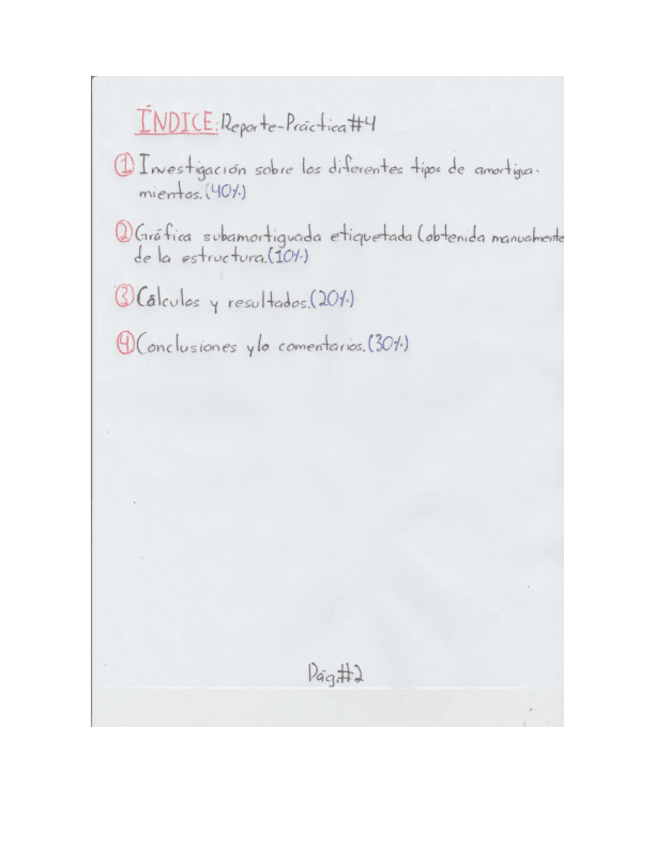 ÍNDICE: Reporte-Práctica#4
① Investigación sobre los diferentes tipos de amortigua-
mientos. (40%)
② Gráfica subamortiguada etiquetada (obtenida manualmente
de la estructura. (10%)
③ Cálculos y resultados. (20%)
④ Conclusiones y/o comentarios. (30%)
Pág.#2